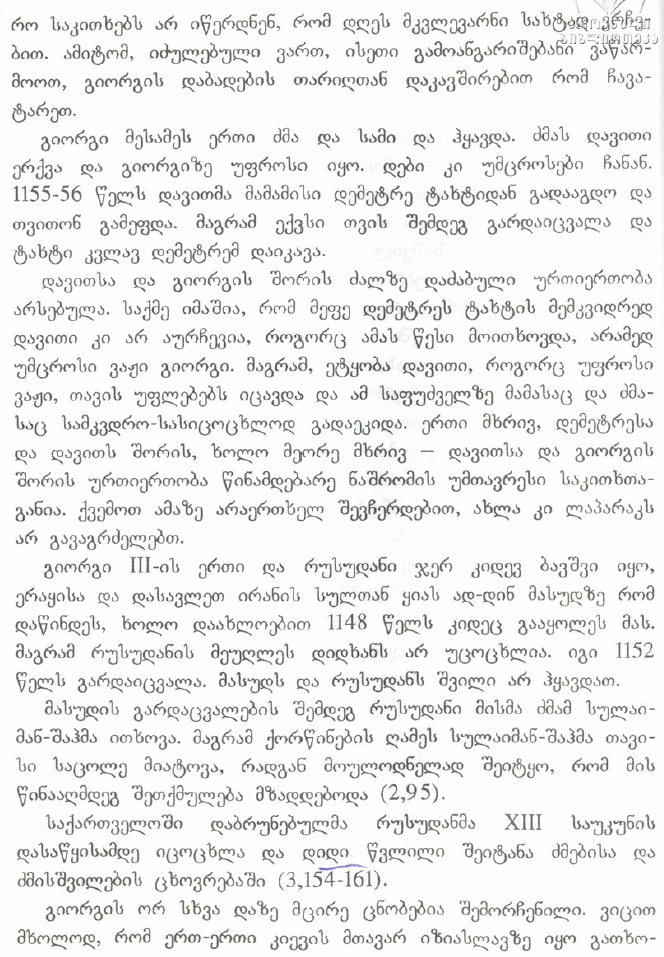 რო საკითხებს არ იწერდნენ, რომ დღეს მკვლევარნი სახტად ვრჩე-
ბით. ამიტომ, იძულებული ვართ, ისეთი გამოანგარიშებანი ვაწარ-
მოოთ, გიორგის დაბადების თარიღთან დაკავშირებით რომ ჩავა-
ტარეთ.
გიორგი მესამეს ერთი ძმა და სამი და ჰყავდა. ძმას დავითი
ერქვა და გიორგიზე უფროსი იყო. დები კი უმცროსები ჩანან.
1155-56 წელს დავითმა მამამისი დემეტრე ტახტიდან გადააგდო და
თვითონ გამეფდა. მაგრამ ექვსი თვის შემდეგ გარდაიცვალა და
ტახტი კვლავ დემეტრემ დაიკავა.
დავითსა და გიორგის შორის ძალზე დაძაბული ურთიერთობა
არსებულა. საქმე იმაშია, რომ მეფე დემეტრეს ტახტის მემკვიდრედ
დავითი კი არ აურჩევია, როგორც ამას წესი მოითხოვდა, არამედ
უმცროსი ვაჟი გიორგი. მაგრამ, ეტყობა დავითი, როგორც უფროსი
ვაჟი, თავის უფლებებს იცავდა და ამ საფუძველზე მამასაც და ძმა-
საც სამკვდრო-სასიცოცხლოდ გადაეკიდა. ერთი მხრივ, დემეტრესა
და დავითს შორის, ხოლო მეორე მხრივ – დავითსა და გიორგის
შორის ურთიერთობა წინამდებარე ნაშრომის უმთავრესი საკითხთა-
განია. ქვემოთ ამაზე არაერთხელ შევჩერდებით, ახლა კი ლაპარაკს
არ გავაგრძელებთ.
გიორგი III-ის ერთი და რუსუდანი ჯერ კიდევ ბავშვი იყო,
ერაყისა და დასავლეთ ირანის სულთან ყიას ად-დინ მასუდზე რომ
დაწინდეს, ხოლო დაახლოებით 1148 წელს კიდეც გააყოლეს მას.
მაგრამ რუსუდანის მეუღლეს დიდხანს არ უცოცხლია. იგი 1152
წელს გარდაიცვალა. მასუდს და რუსუდანს შვილი არ ჰყავდათ.
მასუდის გარდაცვალების შემდეგ რუსუდანი მისმა ძმამ სულაი-
მან-შაჰმა ითხოვა. მაგრამ ქორწინების ღამეს სულაიმან-შაჰმა თავი-
სი საცოლე მიატოვა, რადგან მოულოდნელად შეიტყო, რომ მის
წინააღმდეგ შეთქმულება მზადდებოდა (2,95).
საქართველოში დაბრუნებულმა რუსუდანმა XIII საუკუნის
დასაწყისამდე იცოცხლა და დიდი წვლილი შეიტანა ძმებისა და
ძმისშვილების ცხოვრებაში (3,154-161).
გიორგის ორ სხვა დაზე მცირე ცნობებია შემორჩენილი. ვიცით
მხოლოდ, რომ ერთ-ერთი კიევის მთავარ იზიასლავზე იყო გათხო-